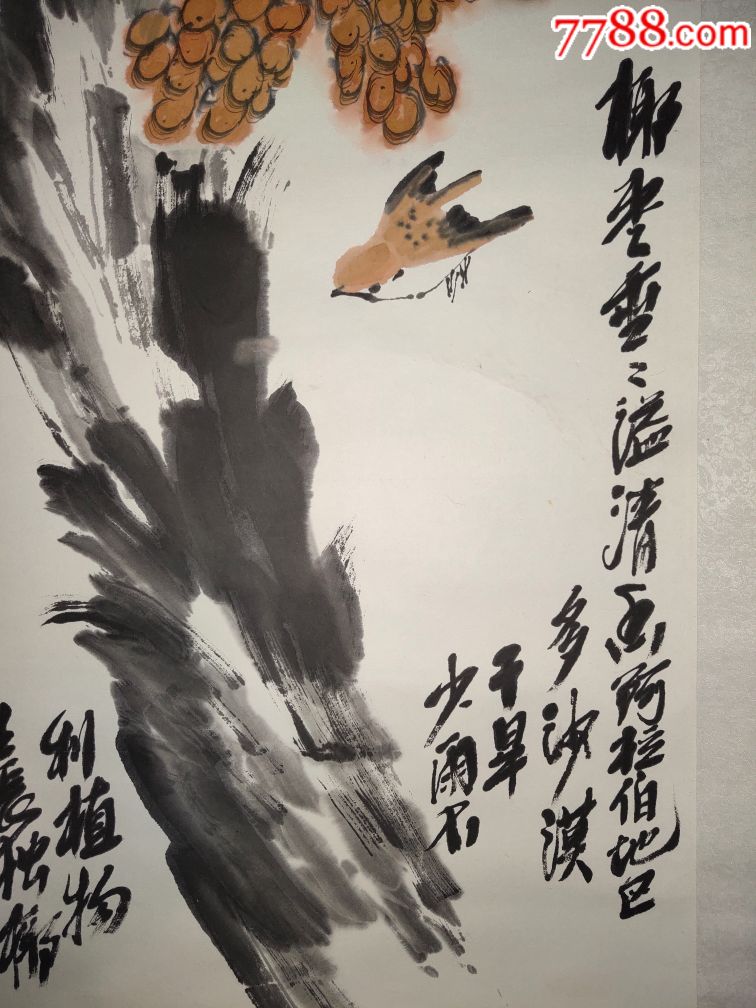 7788.com
椰枣垂々溢清香阿拉伯地区
多沙漠
干旱
少雨不
利植物
生长独椰